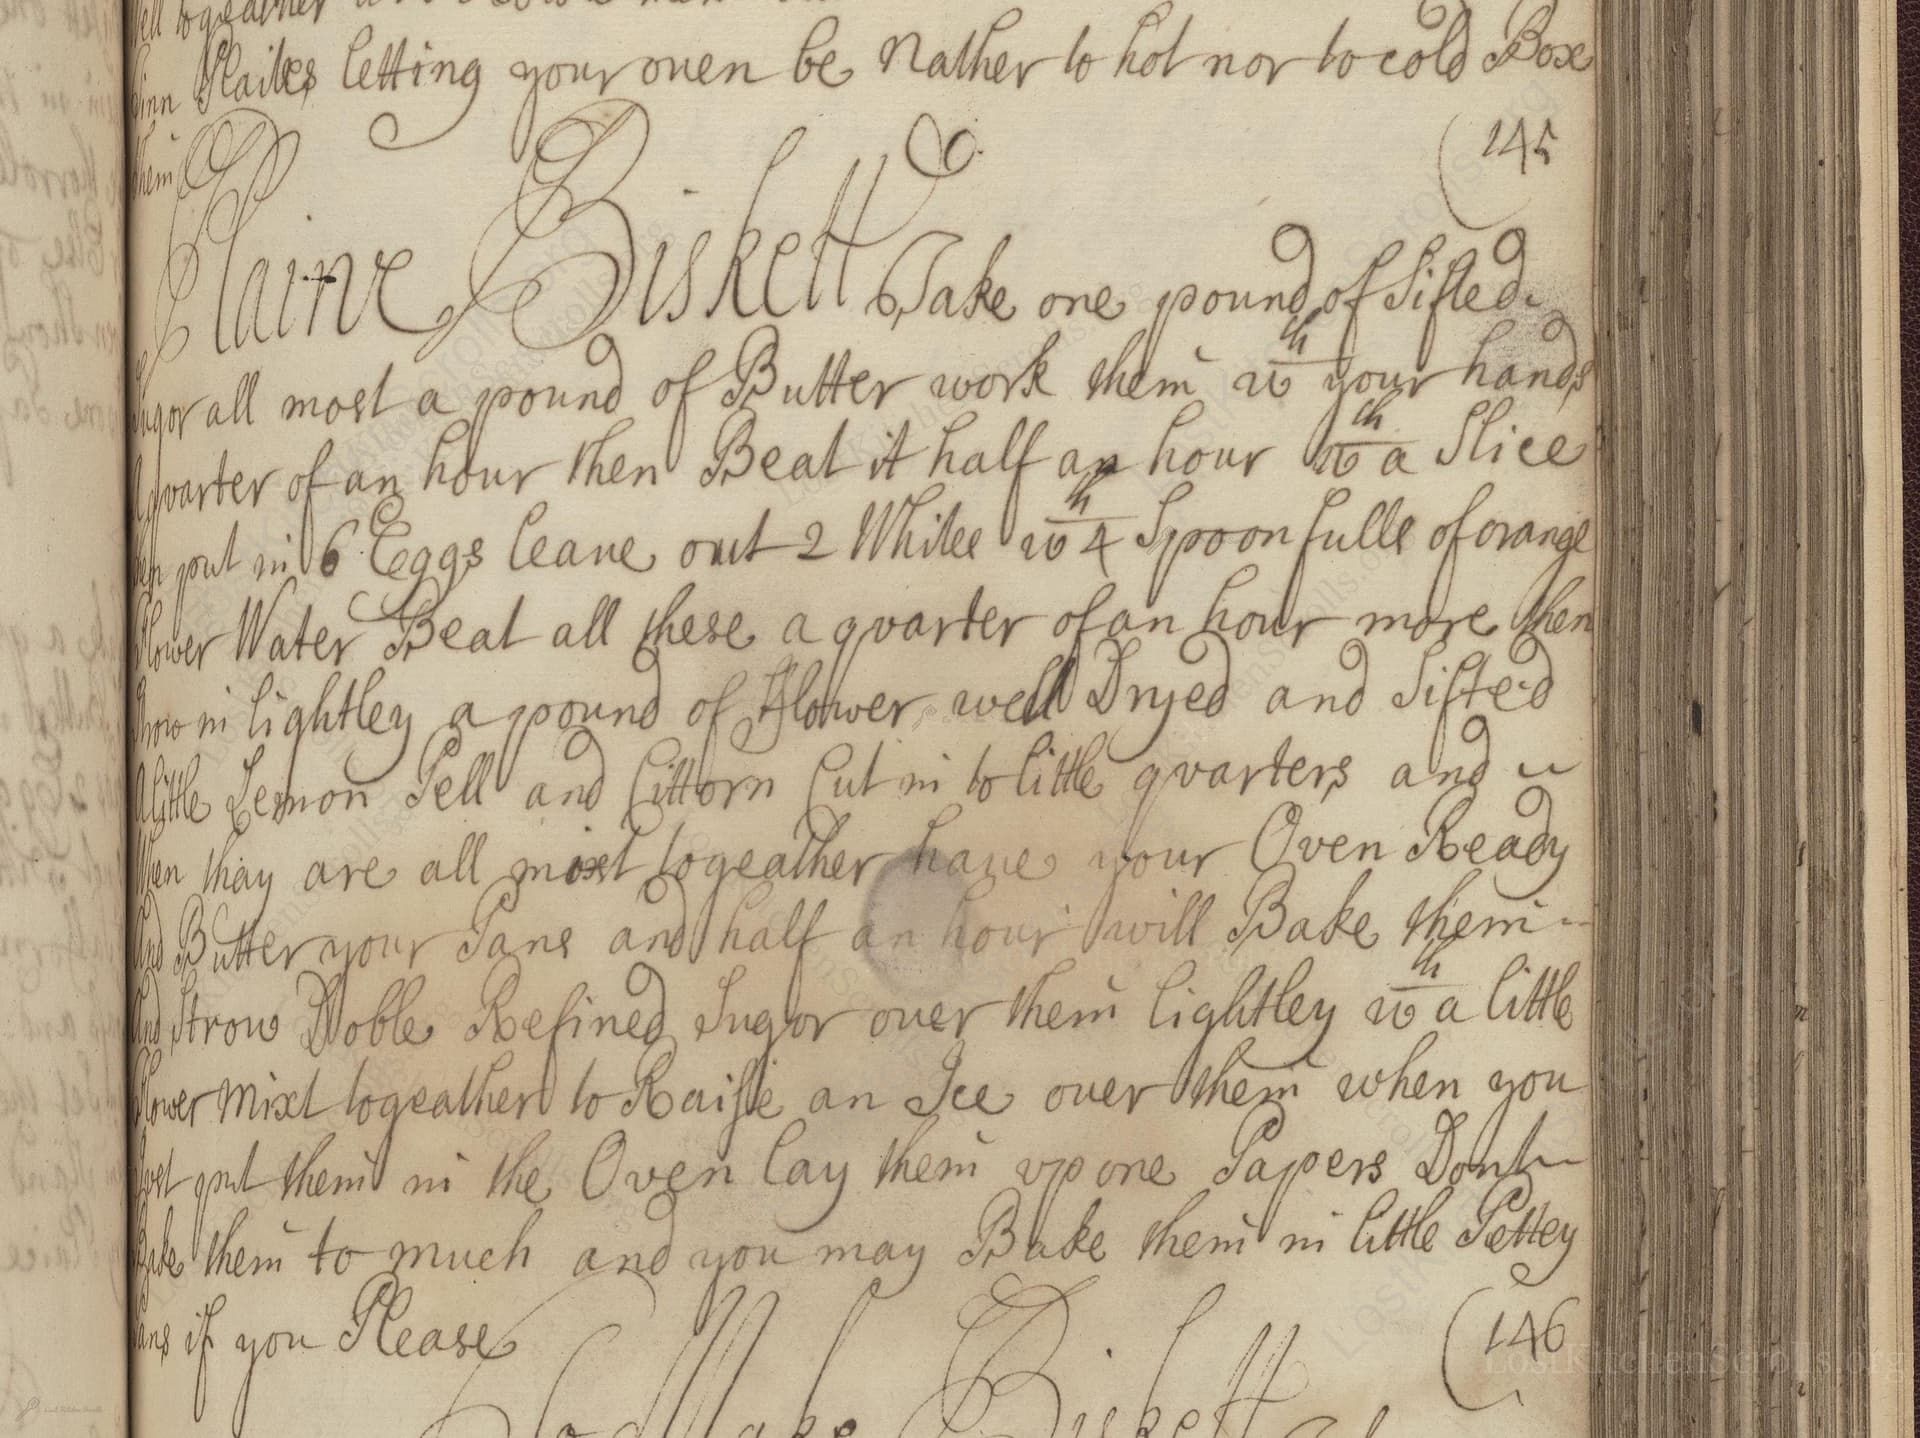 well togeather
tinn Plaites letting your ouen be Nather to hot nor to cold Box
them
(145
Plaine Biskett Take one pound of Sifted
Sugor all most a pound of Butter work them wth your hands
A qvarter of an hour then Beat it half an hour wth a Slice
then put in 6 Eggs leaue out 2 Whites wth 4 Spoonfulls of orange
flower Water Beat all these a qvarter of an hour more then
Strow in lightley a pound of Flower well Dryed and Sifted
A little Lemon Pell and Cittorn Cut in to little qvarters and
When thay are all mixt togeather haue your Oven Ready
And Butter your Pans and half an hour will Bake them
And Strow Doble Refined Sugor ouer them lightley wth a little
flower Mixt togeather to Raise an Ice ouer them when you
Just put them in the Oven lay them vpone Papers Dont
Bake them to much and you may Bake them in little Pettey
Pans if you Please
(146
To Make Biskett
LostKitchenScrolls.org